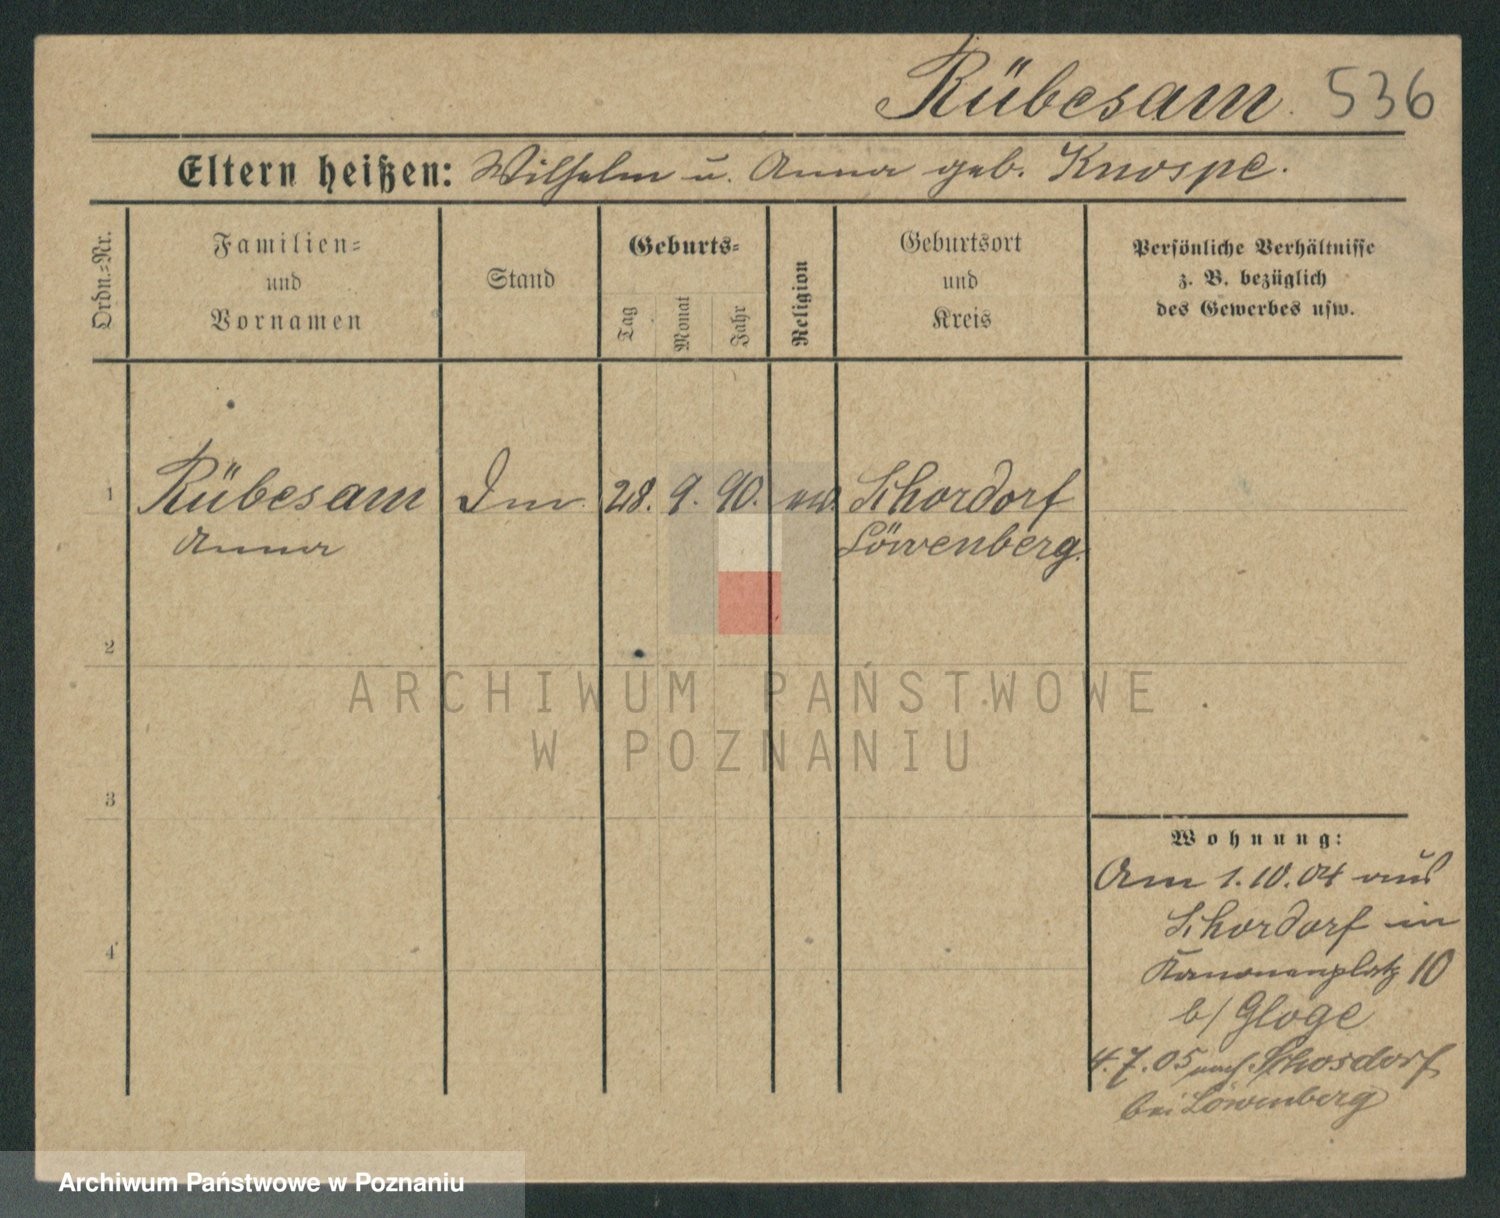 Rübesam. 536
Eltern heißen: Wilhelm u. Anna geb. Knospe.
Ordn.-Nr.
Familien-
und
Vornamen
Stand
Geburts-
Tag
Monat
Jahr
Religion
Geburtsort
und
Kreis
Persönliche Verhältnisse
z. B. bezüglich
des Gewerbes usw.
1 Rübesam 28. 9. 90. Schordorf
Anna Löwenberg.
2
3
4
Wohnung:
Am 1.10.04 aus
Schordorf in
Kanonenplatz 10
b/ Gloge
4.7.05 nach Schosdorf
bei Löwenberg
ARCHIWUM PAŃSTWOWE
W POZNANIU
Archiwum Państwowe w Poznaniu